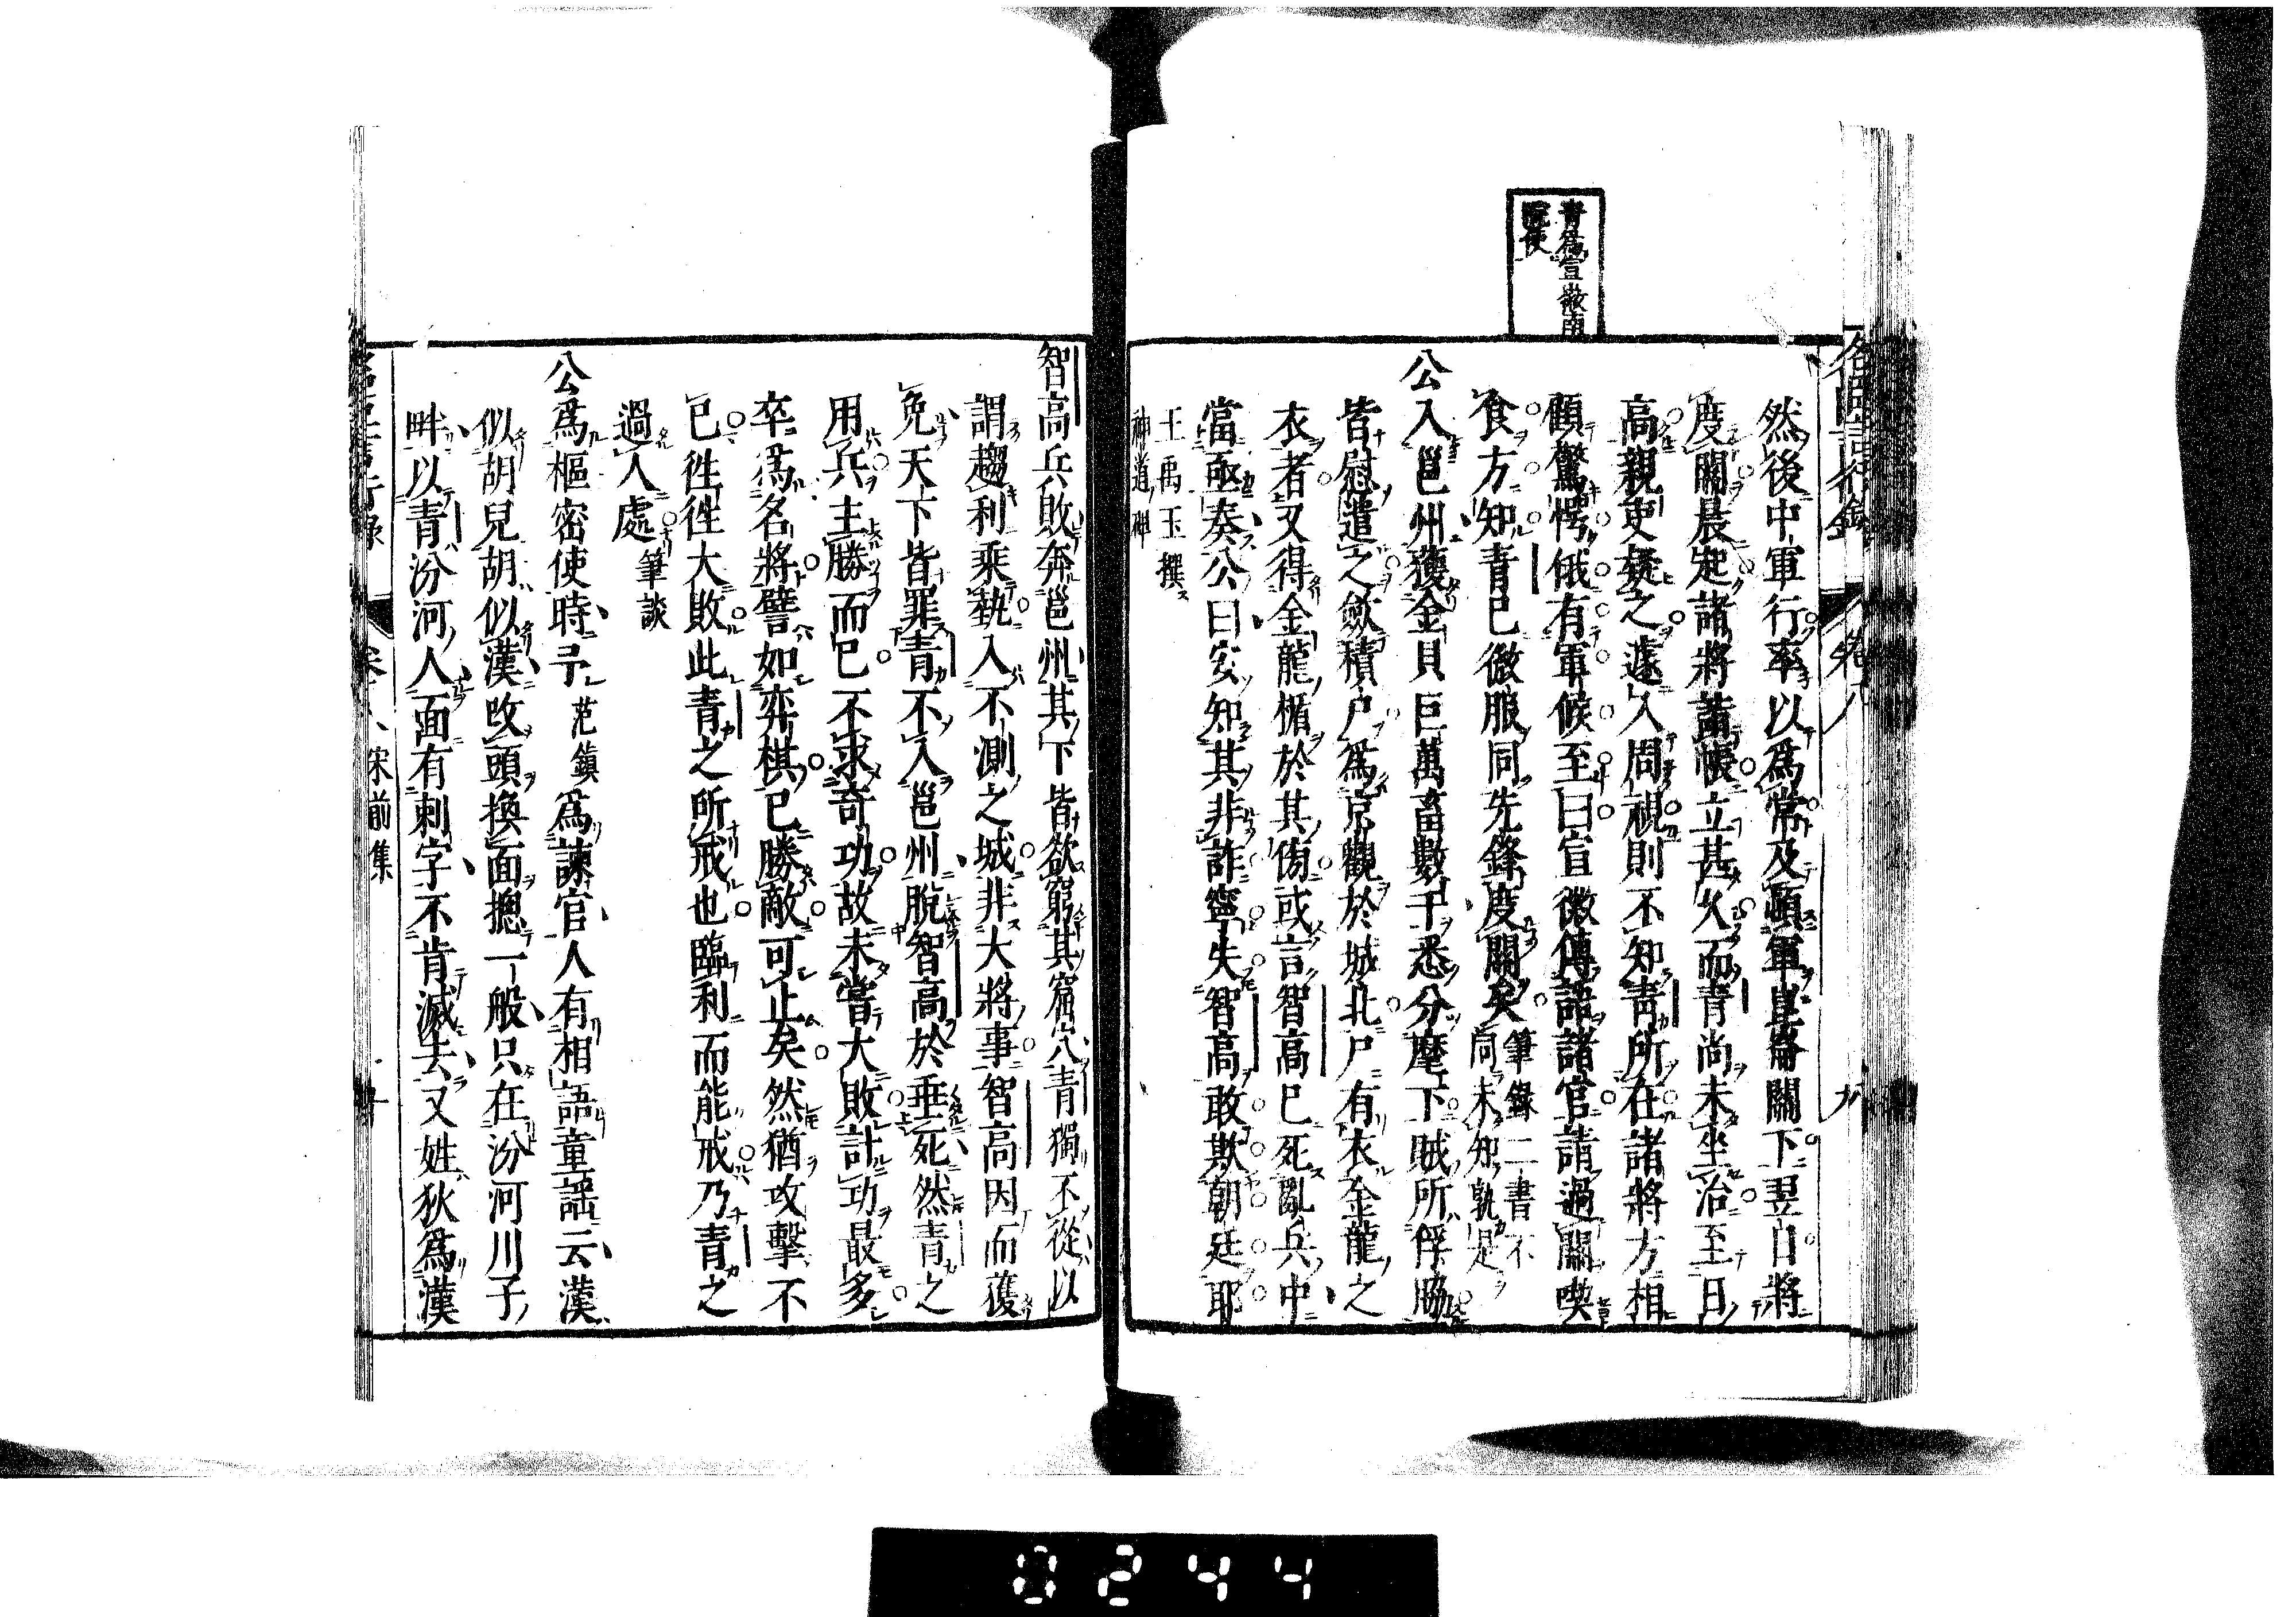 青爲宣徽南
院使
名臣言行錄 卷八 九
然後中軍行率以爲常及頓軍崑崙關下翌日將
度關晨起諸將詣帳立甚久而青尚未坐治至日
高親吏疑之遽入周視則不知青所在諸將方相
顧驚愕俄有軍候至曰宣徽傳語諸官請過關喫
食方知青已微服同先鋒度關矣筆錄二書不
同未知孰是
公入邕州獲金貝巨萬畜數千悉分麾下賊所俘脇
皆慰遣之斂積尸爲京觀於城北尸有衣金龍之
衣者又得金龍楯於其傍或言智高已死亂兵中
當亟奏公曰安知其非詐寧失智高敢欺朝廷耶
王禹玉撰
神道碑
智高兵敗奔邕州其下皆欲窮其窟穴青獨不從以
謂趨利乘埶入不測之城非大將事智高因而獲
免天下皆罪青不入邕州脫智高於垂死然青之
用兵主勝而已不求奇功故未嘗大敗計功最多
卒爲名將譬如弈棋已勝敵可止矣然猶攻擊不
已徃徃大敗此青之所戒也臨利而能戒乃青之
過人處筆談
公爲樞密使時予范鎮爲諫官人有相語童謡云漢
似胡兒胡似漢改頭換面揔一般只在汾河川子
畔以青汾河人面有刺字不肯滅去又姓狄爲漢
宋前集
0244